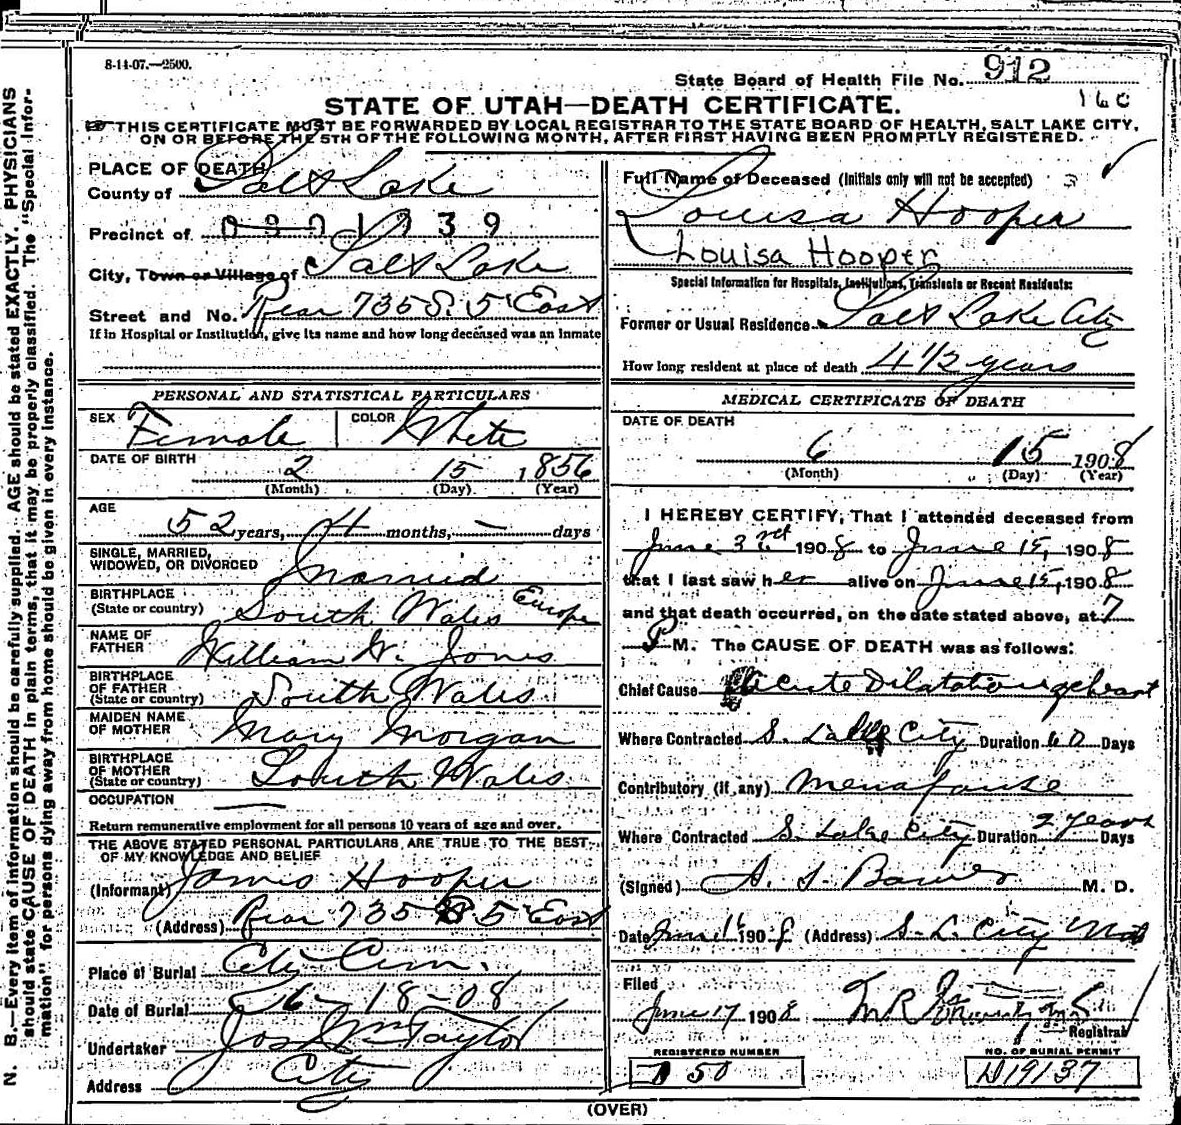 8-14-07.—2500.
State Board of Health File No. 912
160
STATE OF UTAH—DEATH CERTIFICATE.
THIS CERTIFICATE MUST BE FORWARDED BY LOCAL REGISTRAR TO THE STATE BOARD OF HEALTH, SALT LAKE CITY,
ON OR BEFORE THE 5TH OF THE FOLLOWING MONTH, AFTER FIRST HAVING BEEN PROMPTLY REGISTERED.
PLACE OF DEATH
County of Salt Lake
Precinct of 39
City, Town or Village of Salt Lake
Street and No. Rear 735 S. 5 East
If in Hospital or Institution, give its name and how long deceased was an inmate
PERSONAL AND STATISTICAL PARTICULARS
SEX Female COLOR White
DATE OF BIRTH 2 15 1856
(Month) (Day) (Year)
AGE 52 years, 4 months, — days
SINGLE, MARRIED,
WIDOWED, OR DIVORCED Married
BIRTHPLACE
(State or country) South Wales Europe
NAME OF
FATHER William W. Jones
BIRTHPLACE
OF FATHER
(State or country) South Wales
MAIDEN NAME
OF MOTHER Mary Morgan
BIRTHPLACE
OF MOTHER
(State or country) South Wales
OCCUPATION —
Return remunerative employment for all persons 10 years of age and over.
THE ABOVE STATED PERSONAL PARTICULARS ARE TRUE TO THE BEST
OF MY KNOWLEDGE AND BELIEF
(Informant) James Hooper
(Address) Rear 735 S 5 East
Place of Burial City Cem.
Date of Burial 6-18-08
Undertaker Jos Wm Taylor
Address City
Full Name of Deceased (Initials only will not be accepted)
Louisa Hooper
Louisa Hooper
Special Information for Hospitals, Institutions, Transients or Recent Residents:
Former or Usual Residence Salt Lake City
How long resident at place of death 4 1/2 years
MEDICAL CERTIFICATE OF DEATH
DATE OF DEATH
6 15 1908
(Month) (Day) (Year)
I HEREBY CERTIFY, That I attended deceased from
June 3rd 1908 to June 15, 1908
that I last saw her alive on June 15, 1908
and that death occurred, on the date stated above, at 7
P. M. The CAUSE OF DEATH was as follows:
Chief Cause Acute Dilatation of heart
Where Contracted S. Lake City Duration 60 Days
Contributory (if any) Menapause
Where Contracted S. Lake City Duration 2 years Days
(Signed) A. S. M. D.
Date June 16 1908 (Address) S. L. City
Filed
June 17 1908
Registrar
REGISTERED NUMBER
50
NO. OF BURIAL PERMIT
D19137
(OVER)
N. B.—Every item of information should be carefully supplied. AGE should be stated EXACTLY. PHYSICIANS
should state CAUSE OF DEATH in plain terms, that it may be properly classified. The "Special Infor-
mation" for persons dying away from home should be given in every instance.